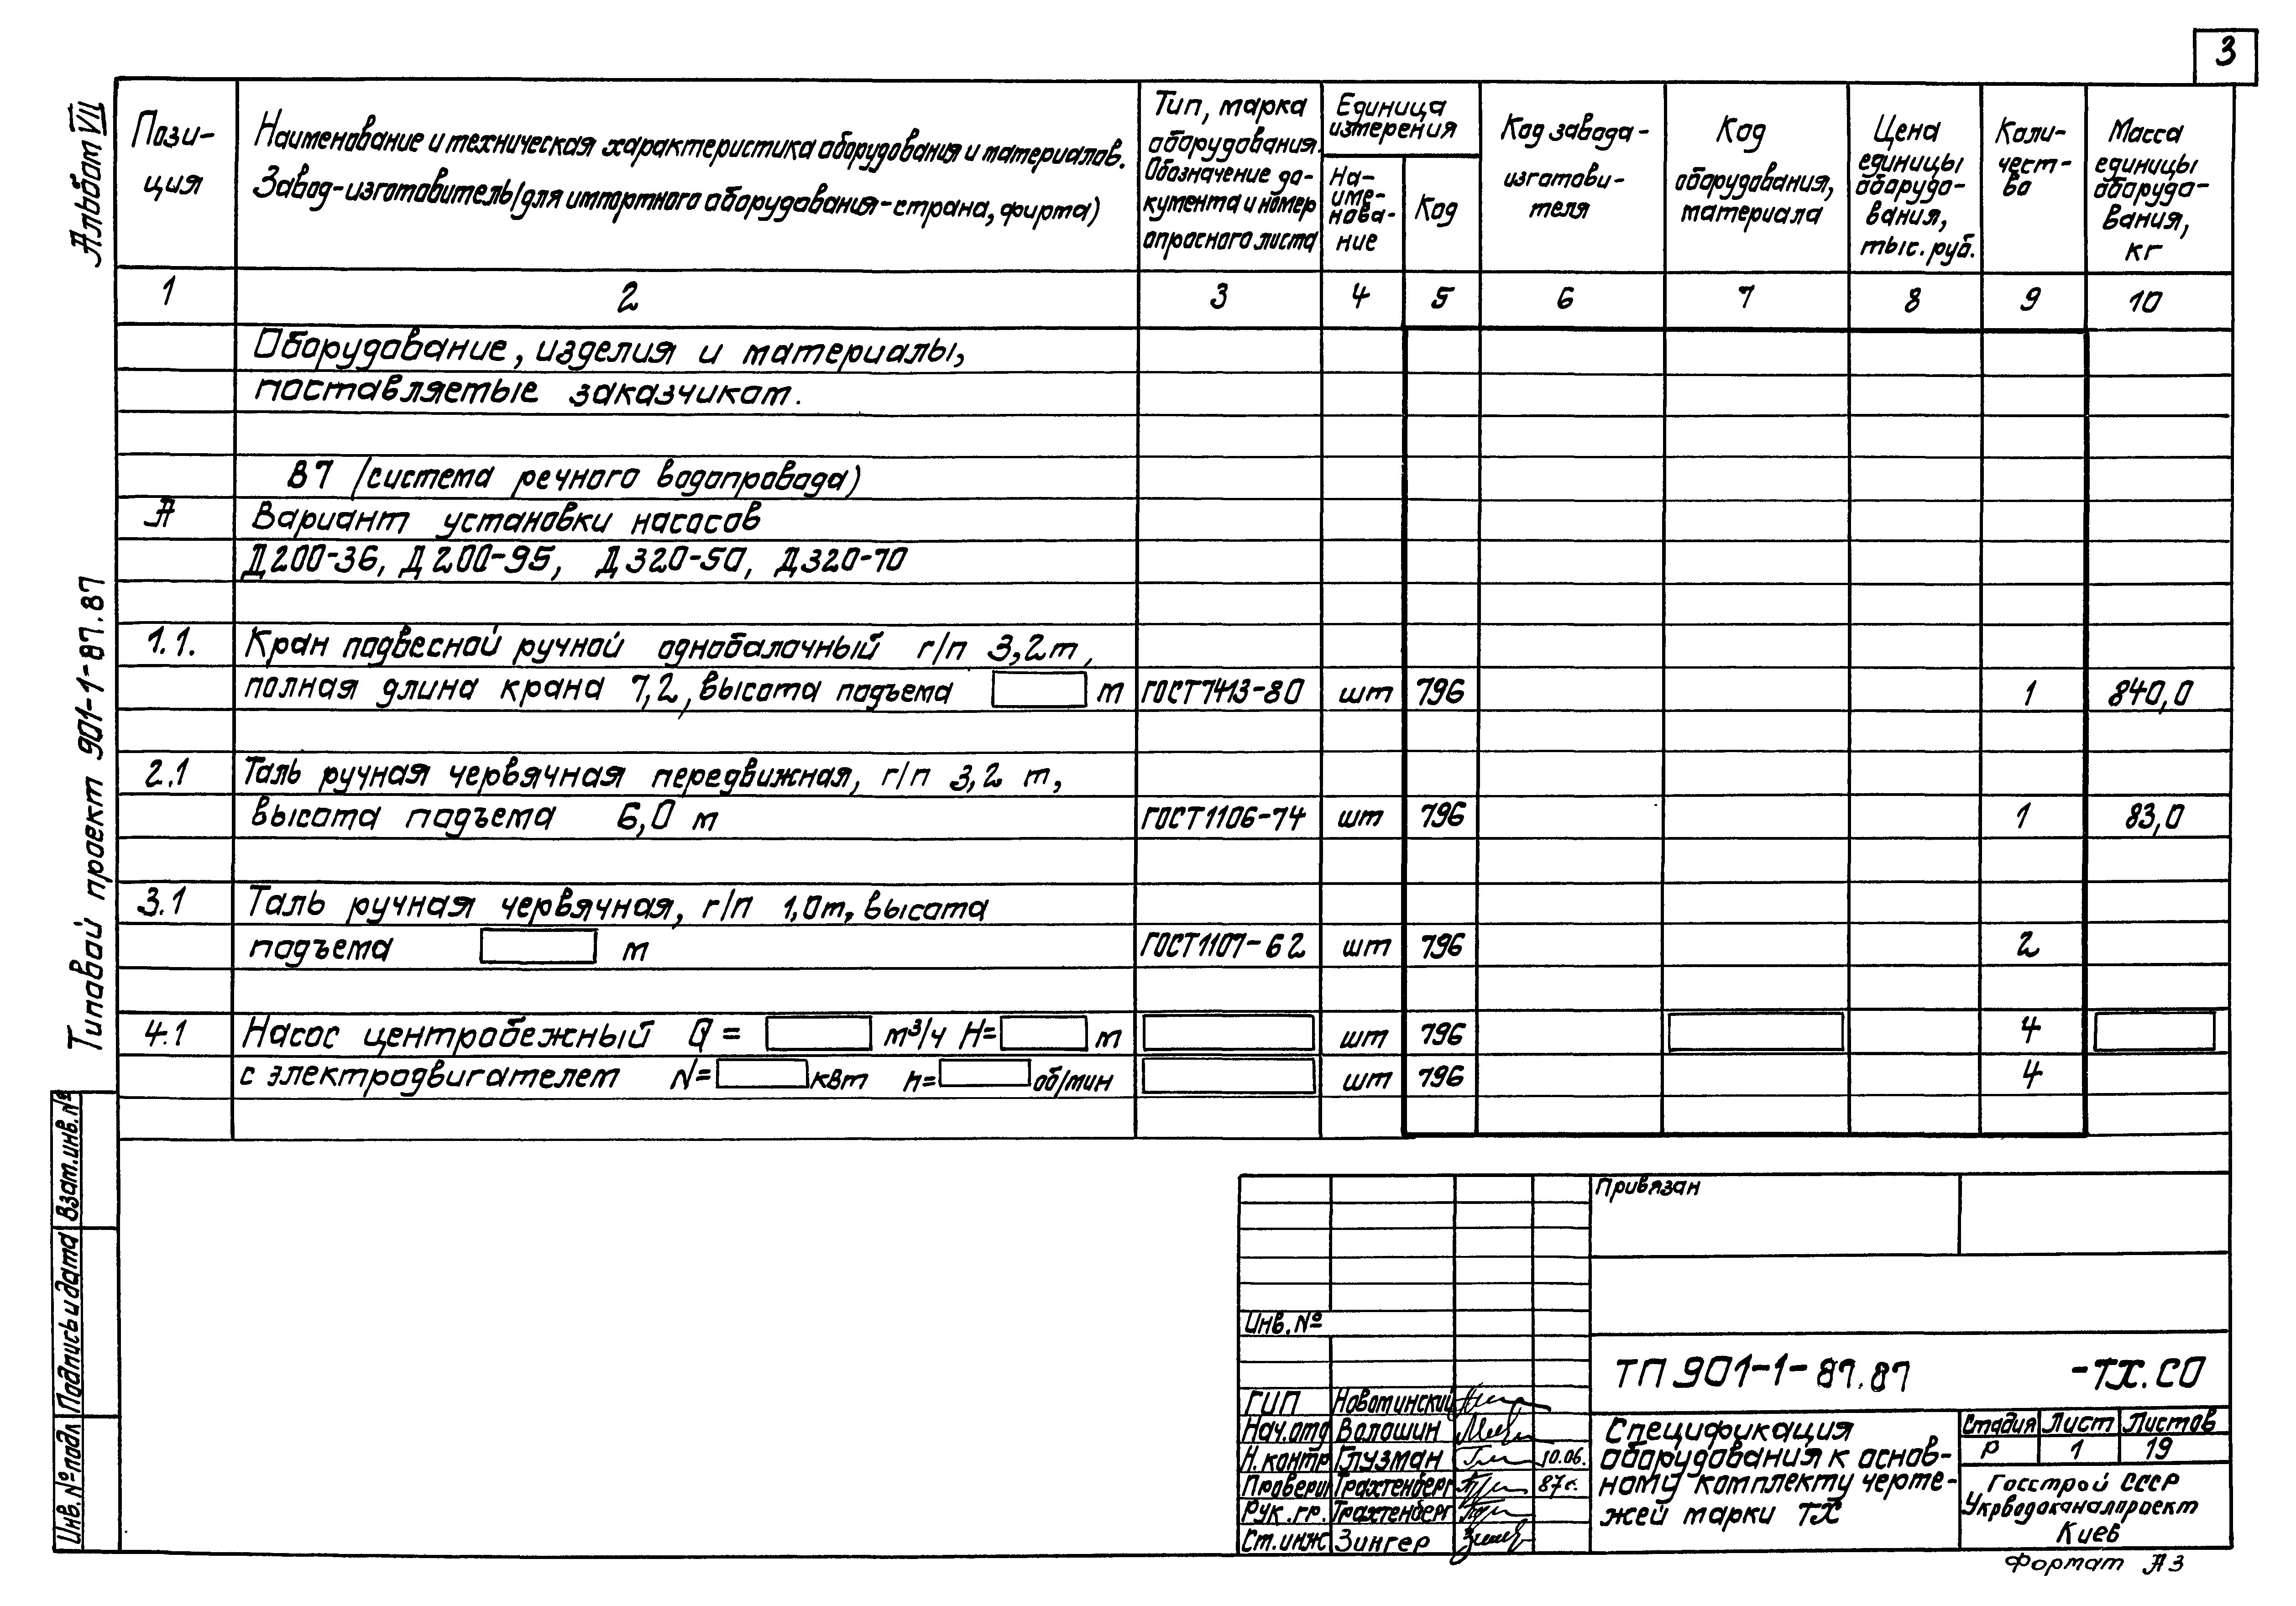 3
Альбом VII
Типовой проект 901-1-87.87
Пози-
ция
Наименование и техническая характеристика оборудования и материалов.
Завод-изготовитель (для импортного оборудования-страна, фирма)
Тип, марка
оборудования.
Обозначение до-
кумента и номер
опросного листа
Единица
измерения
На-
име-
нова-
ние
Код
Код завода-
изготови-
теля
Код
оборудования,
материала
Цена
единицы
оборудо-
вания,
тыс. руб.
Коли-
чест-
во
Масса
единицы
оборудо-
вания,
кг
1 2 3 4 5 6 7 8 9 10
Оборудование, изделия и материалы,
поставляемые заказчиком.
В7 (система речного водопровода)
А Вариант установки насосов
Д200-36, Д200-95, Д320-50, Д320-70
1.1. Кран подвесной ручной однобалочный г/п 3,2т,
полная длина крана 7,2, высота подъема м ГОСТ7413-80 шт 796 1 840,0
2.1 Таль ручная червячная передвижная, г/п 3,2 т,
высота подъема 6,0 м ГОСТ1106-74 шт 796 1 83,0
3.1 Таль ручная червячная, г/п 1,0т, высота
подъема м ГОСТ1107-62 шт 796 2
4.1 Насос центробежный Q = м³/ч Н= м шт 796 4
с электродвигателем N= квт n= об/мин шт 796 4
Взам.инв.№
Подпись и дата
Инв.№ подл
Привязан
Инв.№
ТП 901-1-87.87 -ТХ.СО
ГИП Новоминский
Нач.отд Волошин
Н.контр Глузман 10.06.
Проверил Трахтенберг 87г.
Рук.гр. Трахтенберг
Ст.инж Зингер
Спецификация
оборудования к основ-
ному комплекту черте-
жей марки ТХ
Стадия Лист Листов
Р 1 19
Госстрой СССР
Укрводоканалпроект
Киев
Формат А3